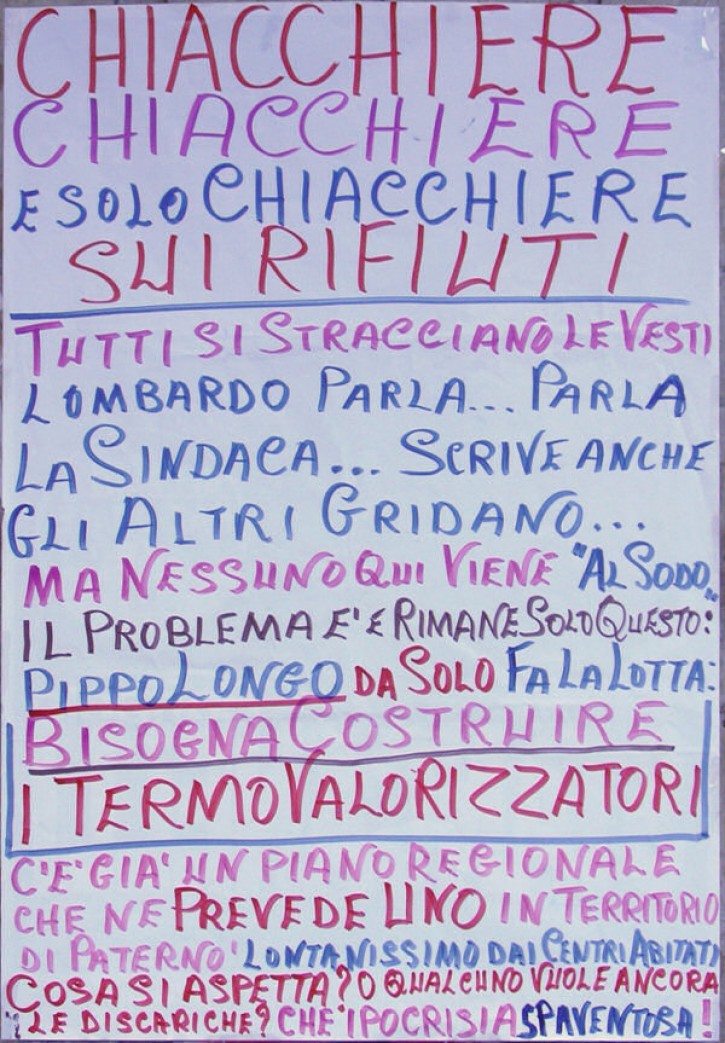 CHIACCHIERE
CHIACCHIERE
E SOLO CHIACCHIERE
SUI RIFIUTI
TUTTI SI STRACCIANO LE VESTI
LOMBARDO PARLA... PARLA
LA SINDACA... SCRIVE ANCHE
GLI ALTRI GRIDANO...
MA NESSUNO QUI VIENE "AL SODO"
IL PROBLEMA E' E RIMANE SOLO QUESTO:
PIPPO LONGO DA SOLO FA LA LOTTA:
BISOGNA COSTRUIRE
I TERMOVALORIZZATORI
C'E' GIA' UN PIANO REGIONALE
CHE NE PREVEDE UNO IN TERRITORIO
DI PATERNO' LONTANISSIMO DAI CENTRI ABITATI
COSA SI ASPETTA? O QUALCUNO VUOLE ANCORA
LE DISCARICHE? CHE' IPOCRISIA SPAVENTOSA!